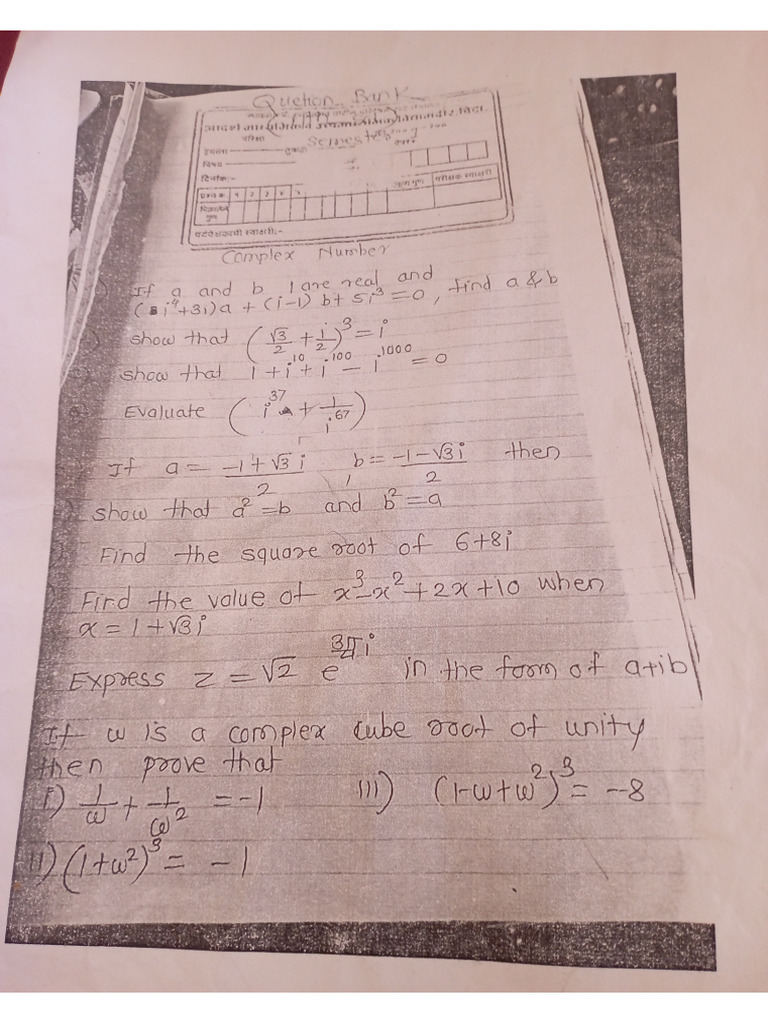 Quetion Bank
Semester
परिक्षा
इयत्ता तुकडी
विषय
दिनांक:-
प्रश्न क्र. १ २ ३ ४ ५ एकूण गुण परीक्षक स्वाक्षरी
मिळालेले गुण
पर्यवेक्षकाची स्वाक्षरी:-
Complex Number
If a and b are real and
(i⁴+3i)a + (i-1)b + 5i³ = 0, find a & b
show that (√3/2 + i/2)³ = i
show that 1 + i¹⁰ + i¹⁰⁰ - i¹⁰⁰⁰ = 0
Evaluate (i³⁷ + 1/i⁶⁷)
If a = (-1+√3 i)/2, b = (-1-√3 i)/2 then
show that a² = b and b² = a
Find the square root of 6+8i
Find the value of x³-x²+2x+10 when
x = 1+√3i
Express z = √2 e^(3π/4 i) in the form of a+ib
If ω is a complex cube root of unity
then prove that
i) 1/ω + 1/ω² = -1 III) (1-ω+ω²)³ = -8
II) (1+ω²)³ = -1